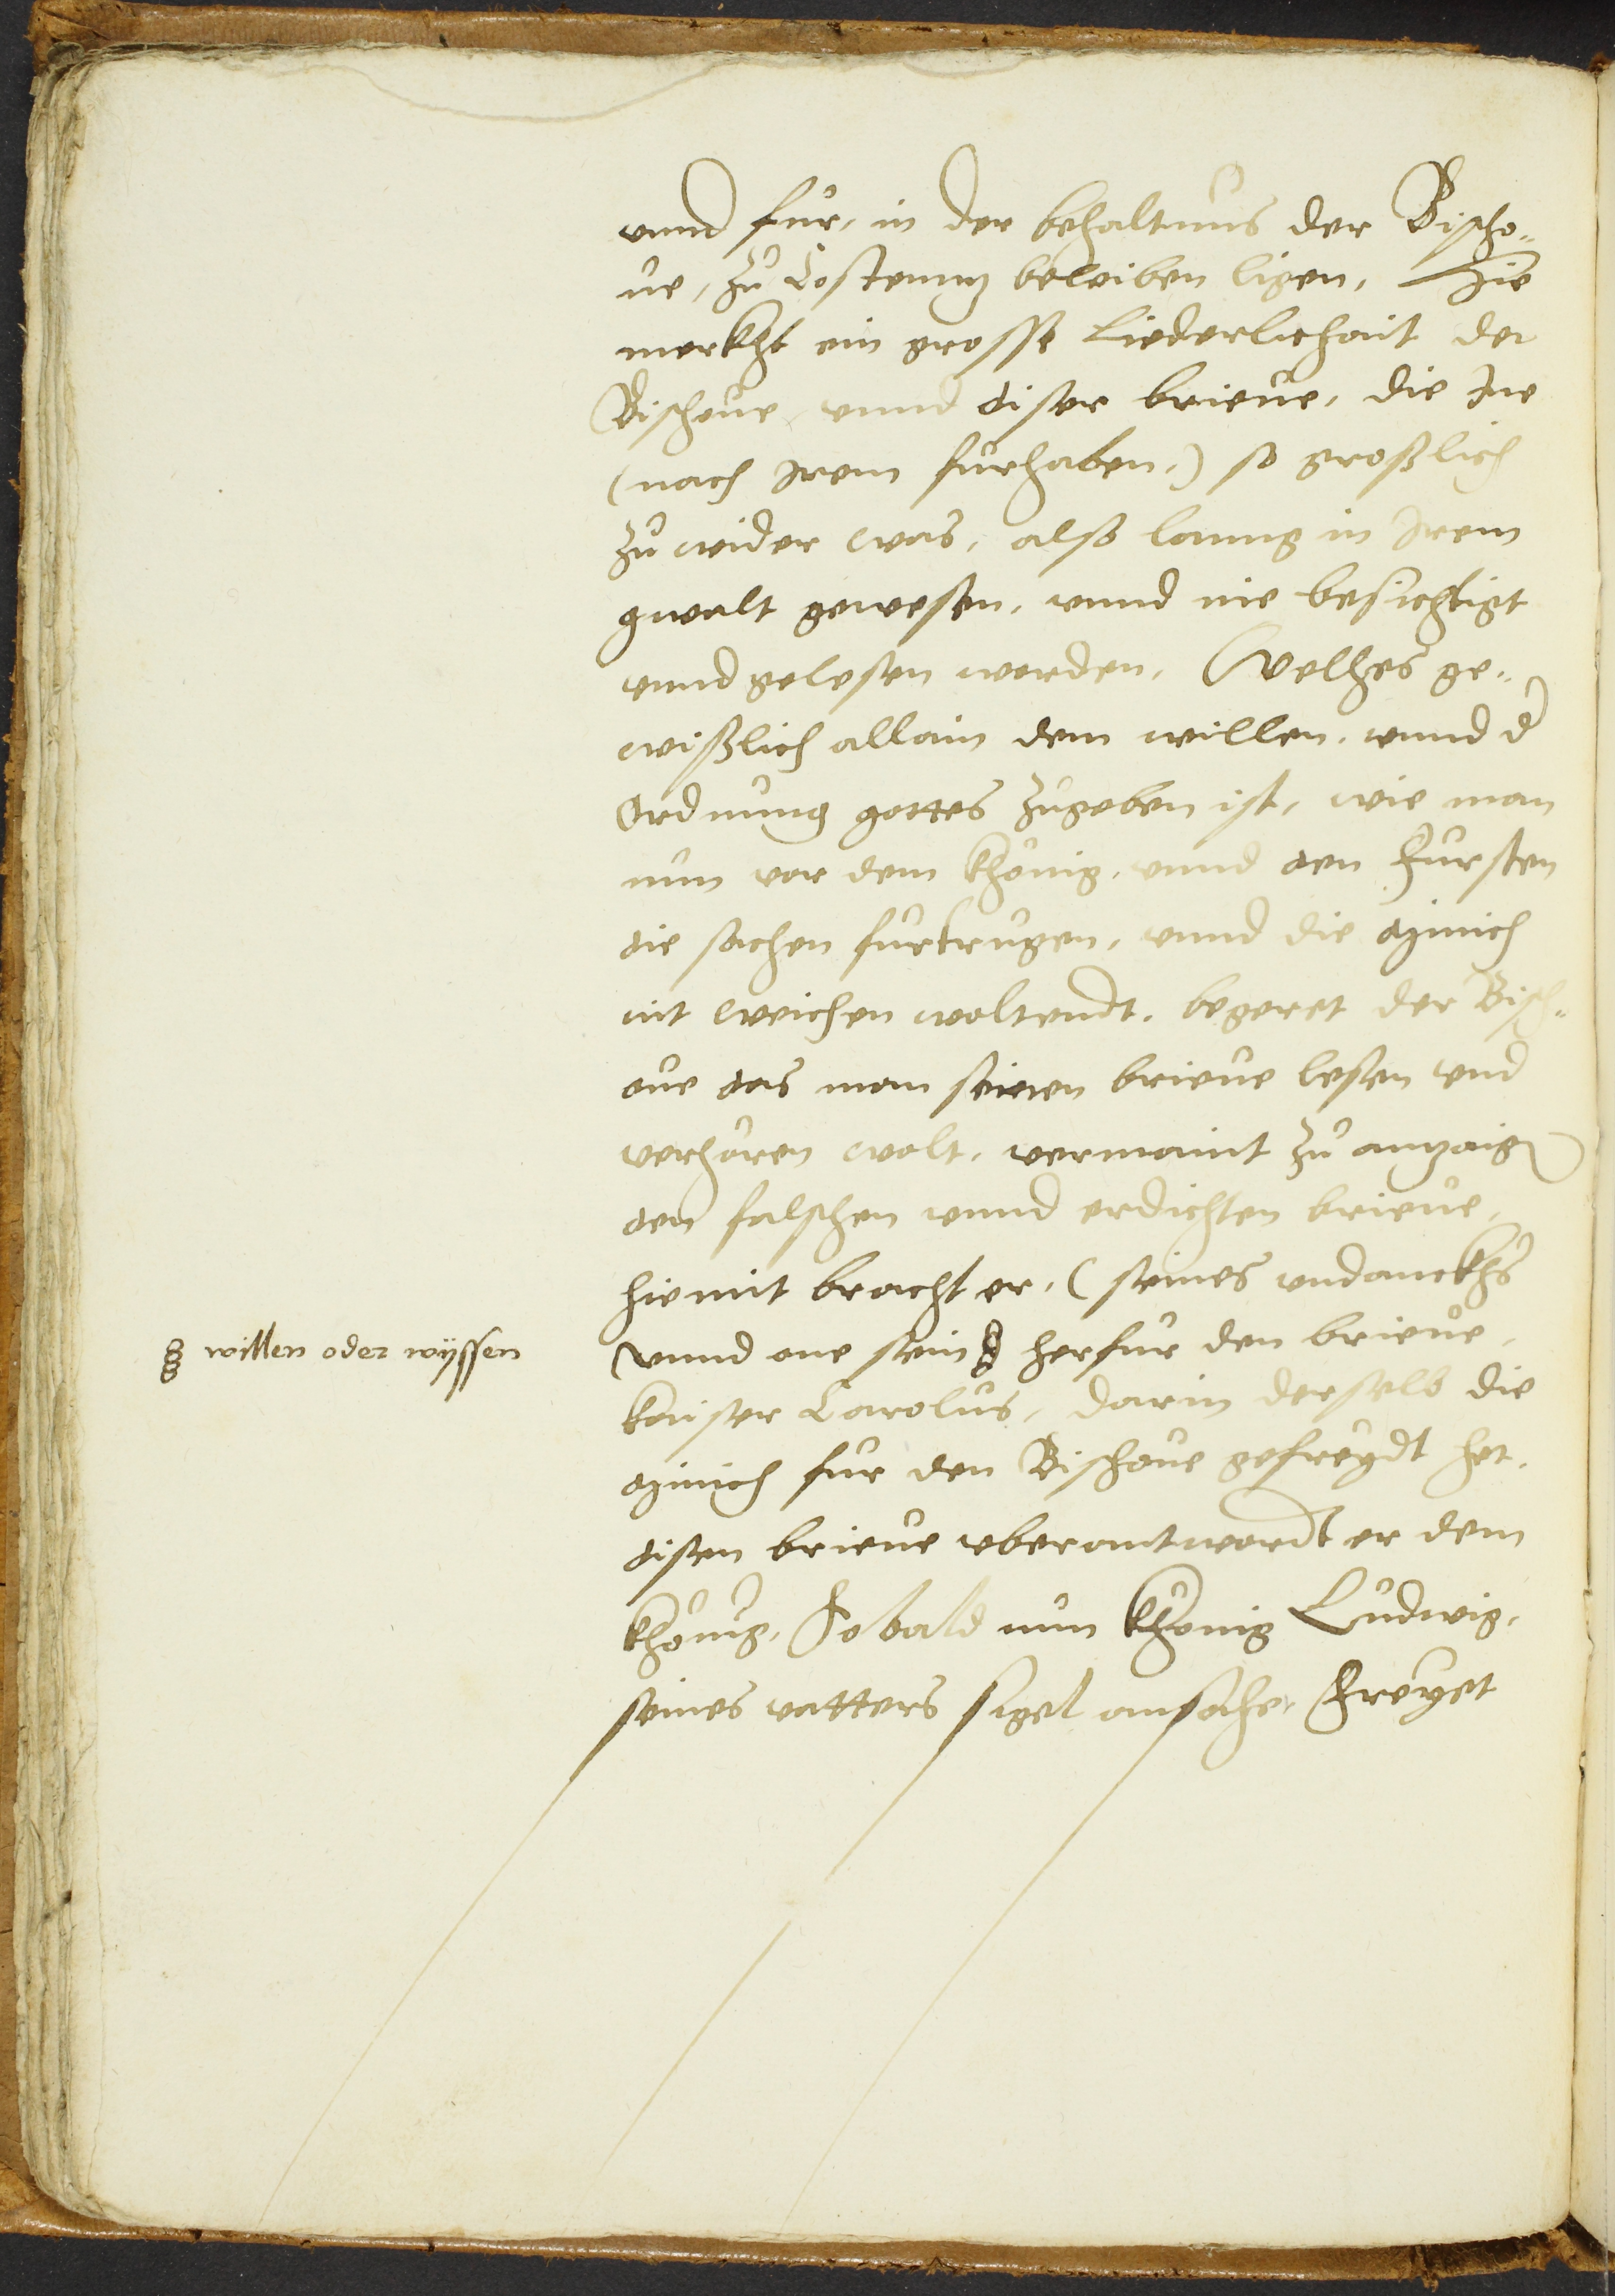 vnnd fur, in der behaltnus der Bischo„
ue, zu Costenntz beleiben ligen, Hie
merkht ein grosse liederlichait der
Bischoue, vnnd diser brieue, die Ine
(nach Irem furhaben,) so großlich
zu wider was, alß lanng in Irem
gwalt gewesen, vnnd nie besichtigt
vnnd gelesen worden, Welhes ge„
wißlich allain dem willen, vnnd d
Ordnung gottes zugeben ist, wie man
nun vor dem Khönig, vnnd den Fursten
die sachen furtrugen, vnnd die münich
nit weichen woltendt, begeret der Bisch„
oue das man seinen brieue lesen vnd
verhoren wolt, vermaint zu anzaign
den falschen vnnd erdichten brieue,
hiemit bracht er, (seines vndanckhs
§ willen oder wyssen
vnnd one sein § herfur den brieue,
kaiser Carolus, darin derselb die
münich fur den Bischoue gefreydt het,
disen brieue vberantwordt er dem
Khönig, Sobald nun Khonig Ludwig,
seines vatters sigel ansahe, Freyet